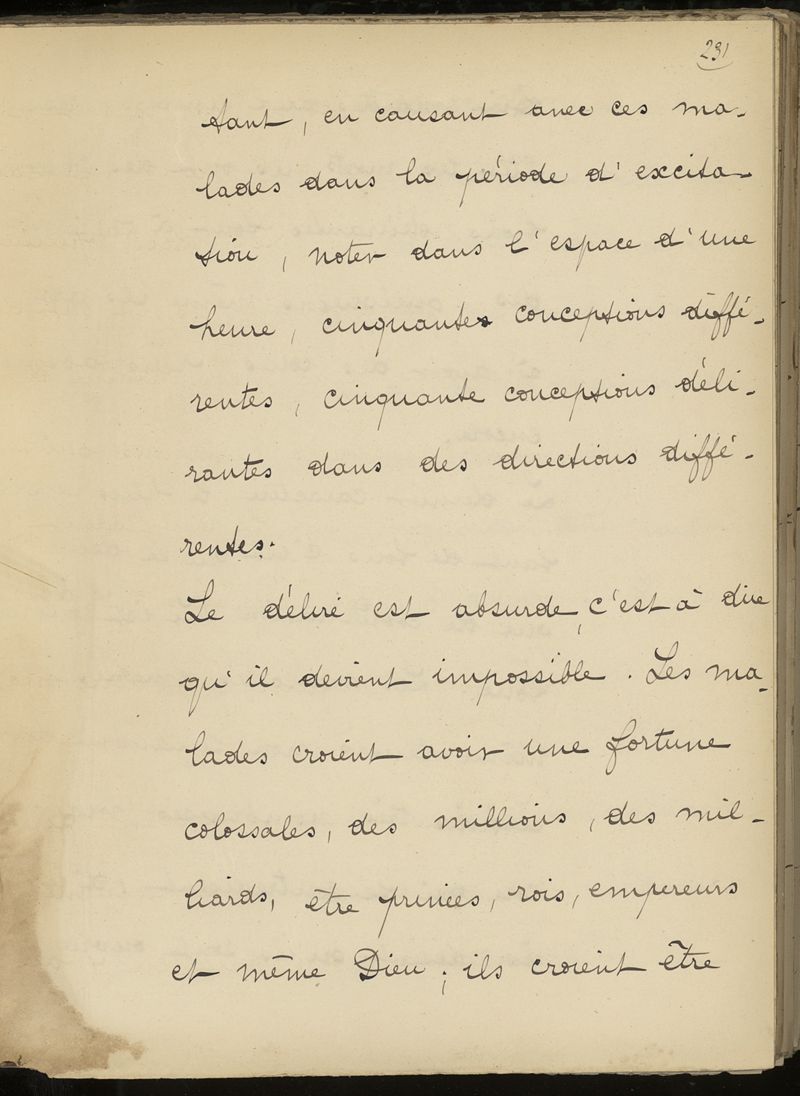 231
tant, en causant avec ces ma-
lades dans la période d'excita-
tion, noter dans l'espace d'une
heure, cinquantes conceptions diffé-
rentes, cinquante conceptions déli-
rantes dans des directions diffé-
rentes.
Le délire est absurde, c'est à dire
qu'il devient impossible. Les ma-
lades croient avoir une fortune
colossales, des millions, des mil-
liards, être princes, rois, empereurs
et même Dieu; ils croient être